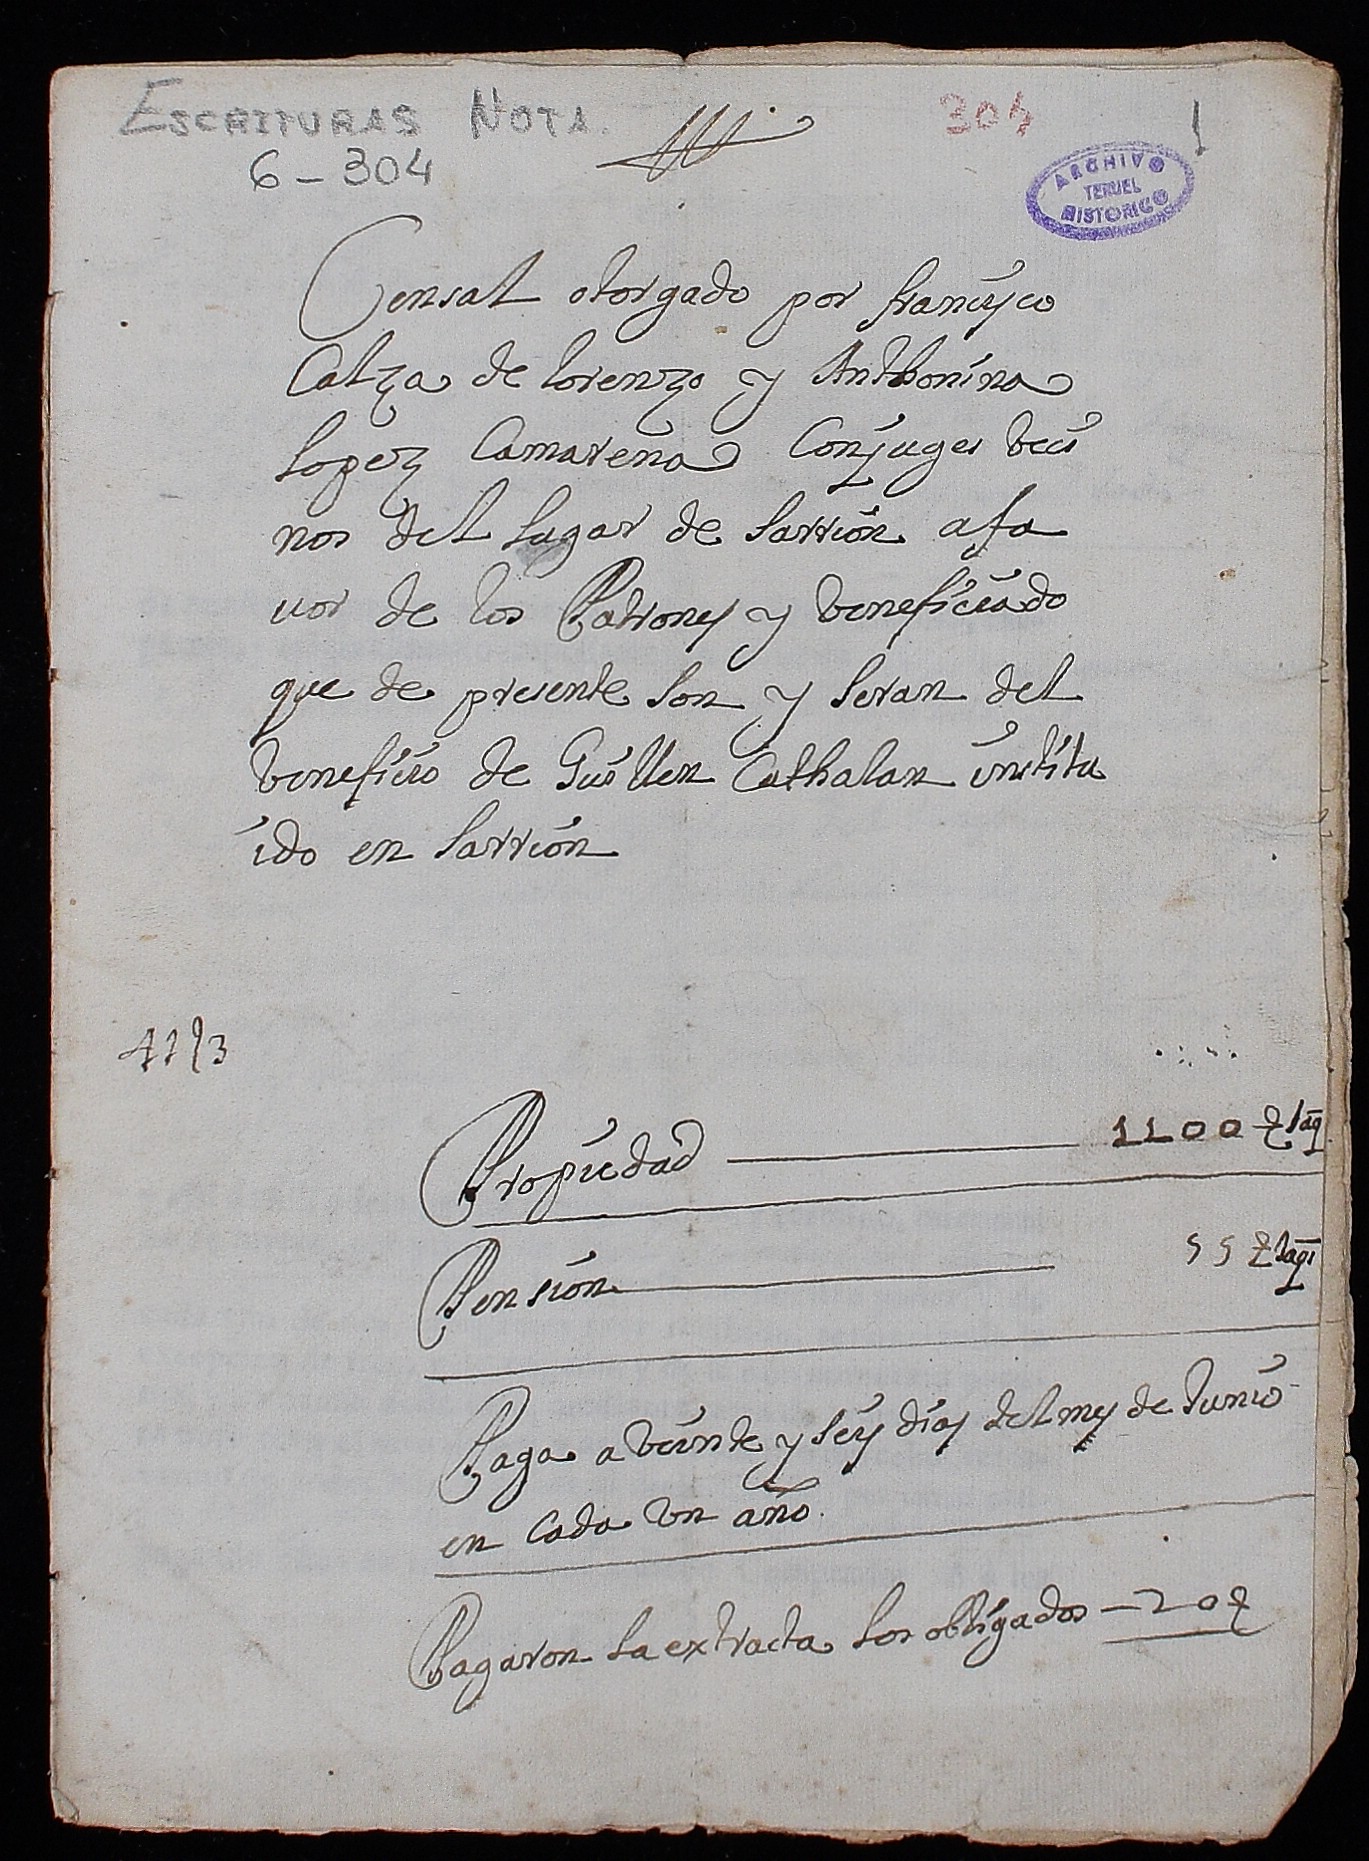 ESCRITURAS NOTA.
6-304
304
1
ARCHIVO
TERUEL
HISTORICO
Censal otorgado por francisco
Calza de lorenzo y Anthonina
lopez Camarena Conjuges veci
nos del lugar de sarrion a fa
uor de los Patrones y beneficiado
que de presente son y seran del
beneficio de Guillen Cathalan institu
ido en sarrion
Propiedad 1100
Pension 55
Paga a veinte y seis dias del mes de Junio
en cada vn año.
Pagaron la extracta los obligados - 20